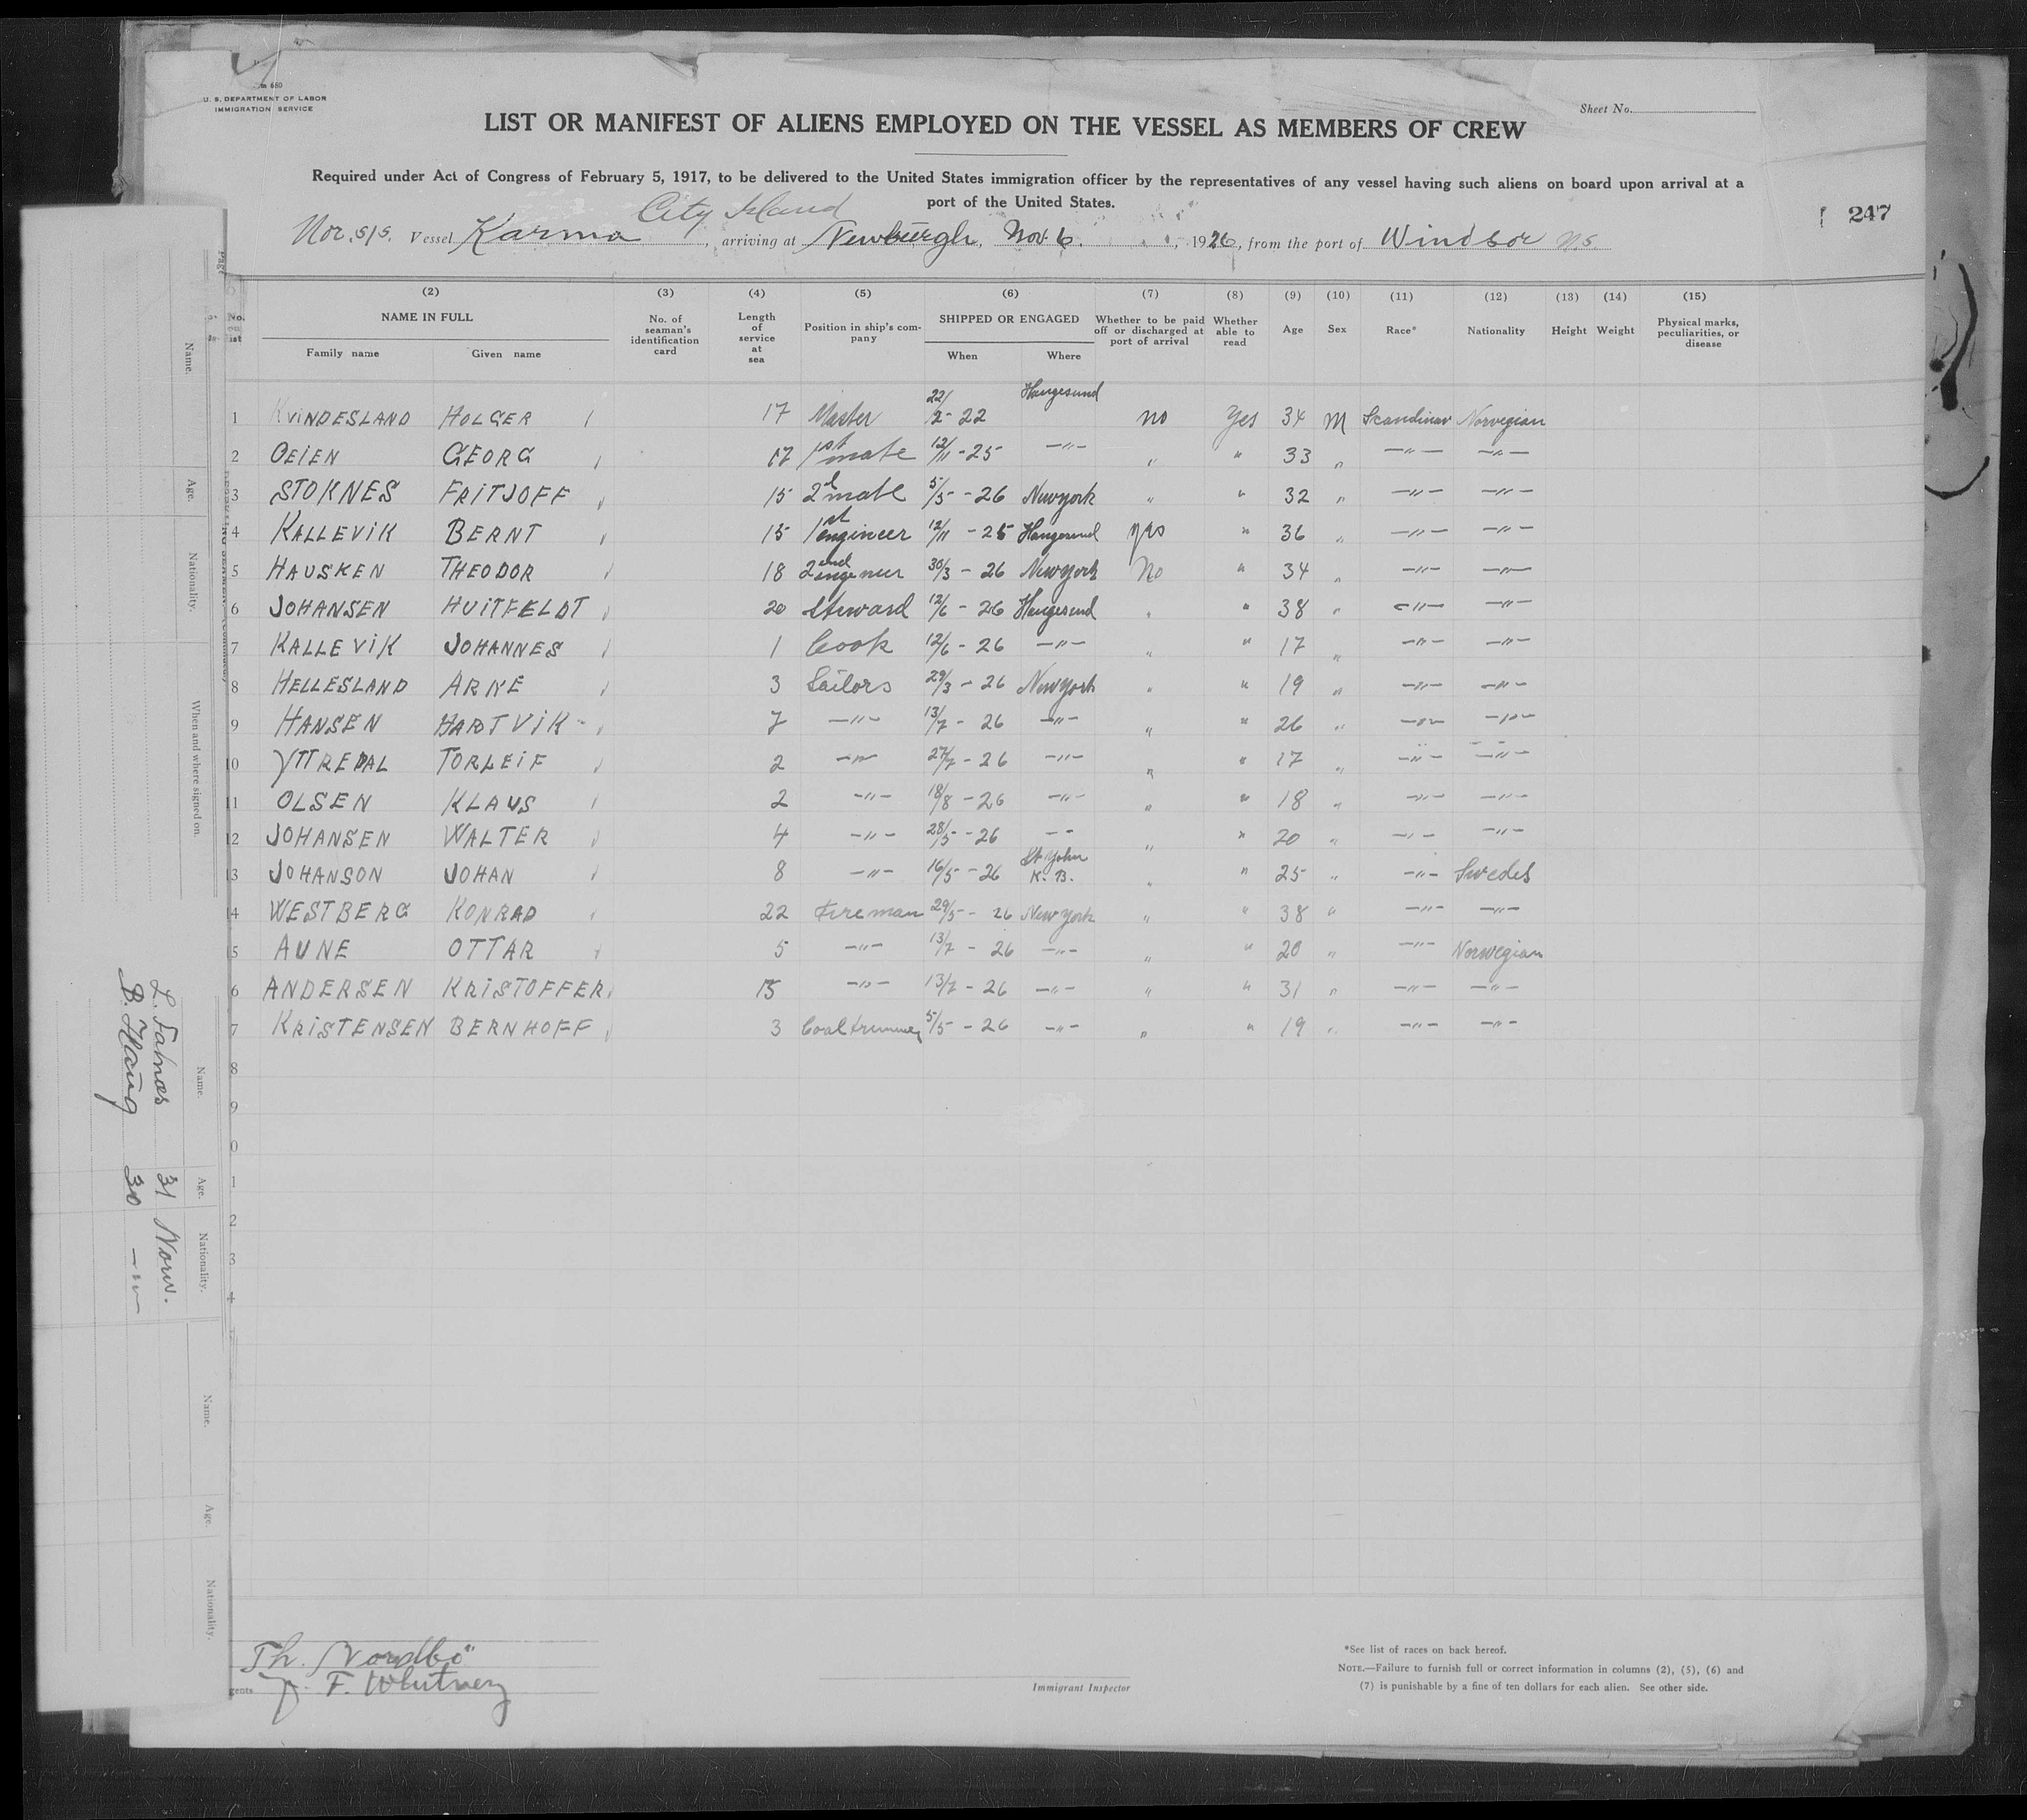 m 680
U. S. DEPARTMENT OF LABOR
IMMIGRATION SERVICE
Sheet No.
LIST OR MANIFEST OF ALIENS EMPLOYED ON THE VESSEL AS MEMBERS OF CREW
Required under Act of Congress of February 5, 1917, to be delivered to the United States immigration officer by the representatives of any vessel having such aliens on board upon arrival at a
port of the United States.
247
City Island
Nor. s/s. Vessel Karma, arriving at Newburgh, Nov. 6., 1926, from the port of Windsor N.S.
(2) (3) (4) (5) (6) (7) (8) (9) (10) (11) (12) (13) (14) (15)
No. on list NAME IN FULL Family name Given name No. of seaman's identification card Length of service at sea Position in ship's company SHIPPED OR ENGAGED When Where Whether to be paid off or discharged at port of arrival Whether able to read Age Sex Race* Nationality Height Weight Physical marks, peculiarities, or disease
1 KVINDESLAND HOLGER 17 Master 22/2-22 Haugesund no Yes 34 M Scandinav Norvegian
2 OEIEN GEORG 17 1st mate 12/11-25 -"- " " 33 " -"- -"-
3 STOKNES FRITJOFF 15 2d mate 5/5-26 Newyork " " 32 " -"- -"-
4 KALLEVIK BERNT 15 1st engineer 12/11-25 Haugesund yes " 36 " -"- -"-
5 HAUSKEN THEODOR 18 2nd 30/3-26 Newyork No " 34 " -"- -"-
6 JOHANSEN HUITFELDT 20 Steward 12/6-26 Haugesund " " 38 " -"- -"-
7 KALLEVIK JOHANNES 1 Cook 12/6-26 -"- " " 17 " -"- -"-
8 HELLESLAND ARNE 3 Sailors 29/3-26 Newyork " " 19 " -"- -"-
9 HANSEN HARTVIK 7 -"- 13/7-26 -"- " " 26 " -"- -"-
10 YTTREDAL TORLEIF 2 -"- 27/7-26 -"- " " 17 " -"- -"-
11 OLSEN KLAUS 2 -"- 18/8-26 -"- " " 18 " -"- -"-
12 JOHANSEN WALTER 4 -"- 28/5-26 -"- " " 20 " -"- -"-
13 JOHANSON JOHAN 8 -"- 16/5-26 St John N.B. " " 25 " -"- Swedes
4 WESTBERG KONRAD 22 Fireman 29/5-26 New york " " 38 " -"- -"-
5 AUNE OTTAR 5 -"- 13/7-26 -"- " " 20 " -"- Norwegian
6 ANDERSEN KRISTOFFER 15 -"- 13/7-26 -"- " " 31 " -"- -"-
7 KRISTENSEN BERNHOFF 3 Coaltrimmer 5/5-26 -"- " " 19 " -"- -"-
8
9
0
1
2
3
4
Th. Nordbö
F. Whitney
gents
Immigrant Inspector
*See list of races on back hereof.
NOTE.—Failure to furnish full or correct information in columns (2), (5), (6) and
(7) is punishable by a fine of ten dollars for each alien. See other side.
Page
Name. Age. Nationality. When and where signed on.
Name. Age. Nationality.
31 Norw.
B. Haug 30 -"-
Name. Age. Nationality.